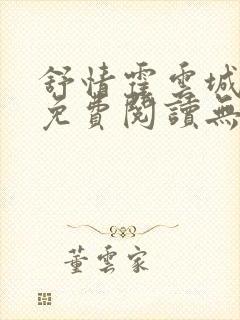 舒情霍雲城
免費閱讀無
董雲家